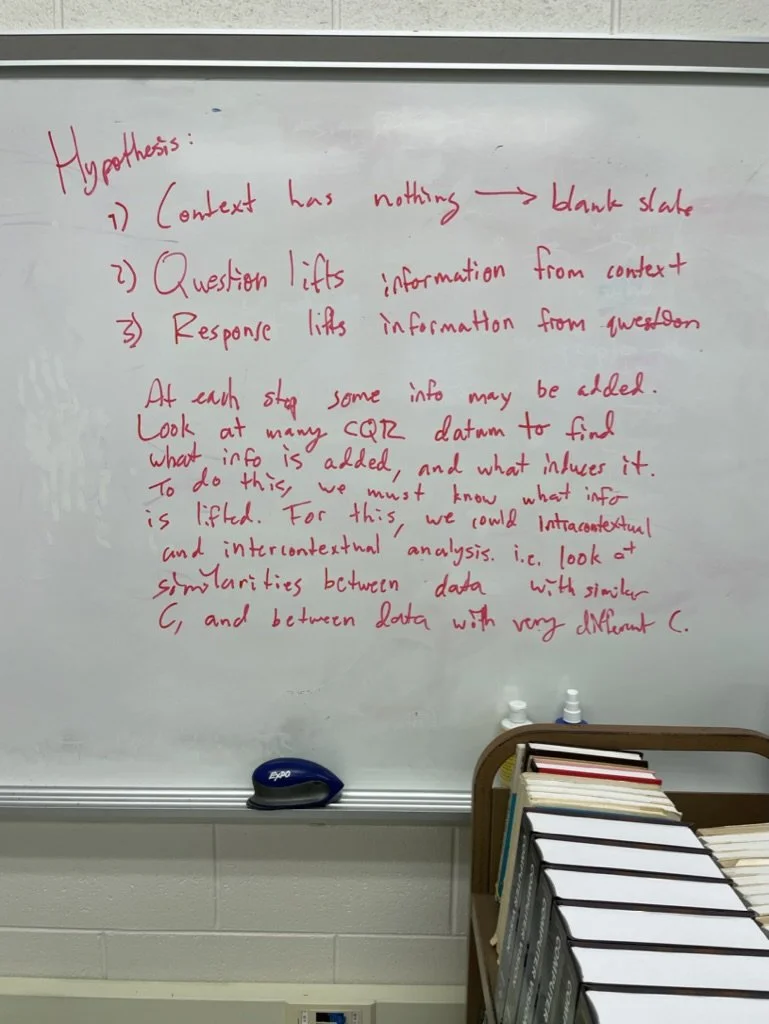 Hypothesis:
1) Context has nothing → blank slate
2) Question lifts information from context
3) Response lifts information from question
At each step some info may be added.
Look at many CQR datum to find
what info is added, and what induces it.
To do this, we must know what info
is lifted. For this, we could Intracontextual
and intercontextual analysis. i.e. look at
similarities between data with similar
C, and between data with very different C.
EXPO
COMPUTER VISION
COMPUTER VISION
COMPUTER VISION
COMPUTER